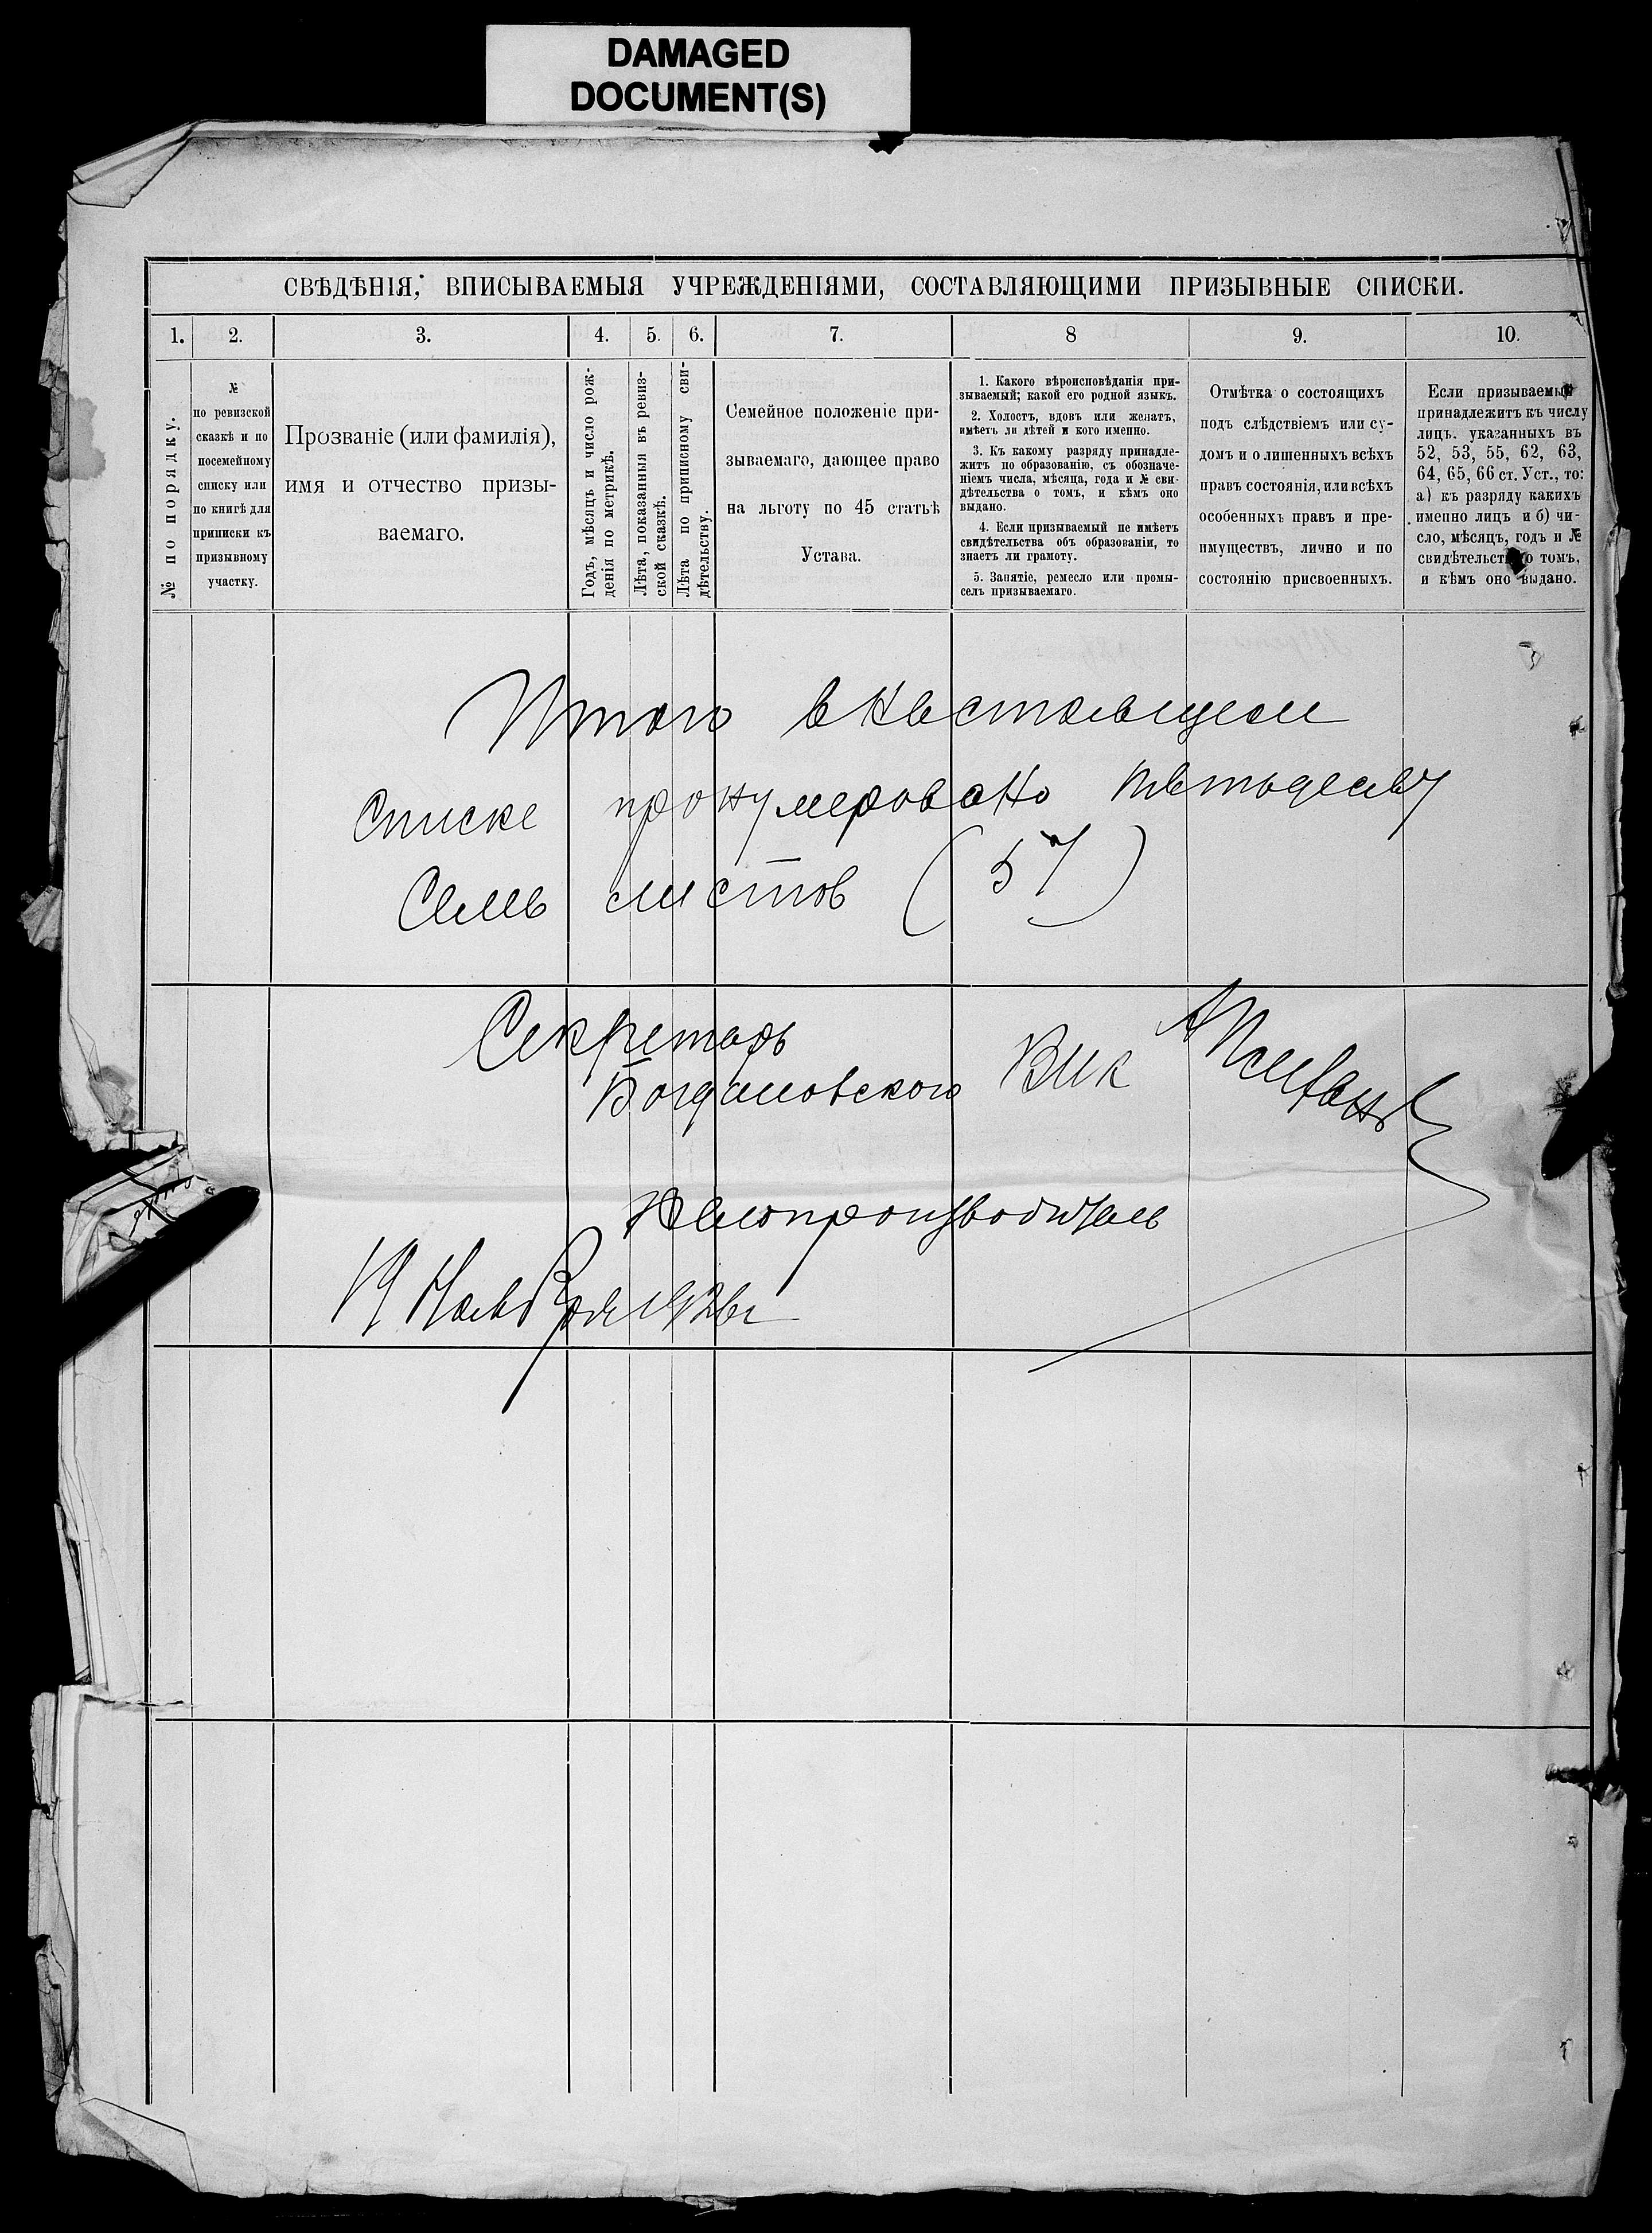 DAMAGED
DOCUMENT(S)
СВѢДѢНІЯ, ВПИСЫВАЕМЫЯ УЧРЕЖДЕНІЯМИ, СОСТАВЛЯЮЩИМИ ПРИЗЫВНЫЕ СПИСКИ.
1. 2. 3. 4. 5. 6. 7. 8 9. 10.
№ по порядку.
№
по ревизской
сказкѣ и по
посемейному
списку или
по книгѣ для
приписки къ
призывному
участку.
Прозваніе (или фамилія),
имя и отчество призы-
ваемаго.
Годъ, мѣсяцъ и число рож-
денія по метрикѣ.
Лѣта, показанныя въ ревиз-
ской сказкѣ.
Лѣта по приписному сви-
дѣтельству.
Семейное положеніе при-
зываемаго, дающее право
на льготу по 45 статьѣ
Устава.
1. Какого вѣроисповѣданія при-
зываемый; какой его родной языкъ.
2. Холостъ, вдовъ или женатъ,
имѣетъ ли дѣтей и кого именно.
3. Къ какому разряду принадле-
житъ по образованію, съ обозначе-
ніемъ числа, мѣсяца, года и № сви-
дѣтельства о томъ, и кѣмъ оно
выдано.
4. Если призываемый не имѣетъ
свидѣтельства объ образованіи, то
знаетъ ли грамоту.
5. Занятіе, ремесло или промы-
селъ призываемаго.
Отмѣтка о состоящихъ
подъ слѣдствіемъ или су-
домъ и о лишенныхъ всѣхъ
правъ состоянія, или всѣхъ
особенныхъ правъ и пре-
имуществъ, лично и по
состоянію присвоенныхъ.
Если призываемый
принадлежитъ къ числу
лицъ. указанныхъ въ
52, 53, 55, 62, 63,
64, 65, 66 ст. Уст., то:
а) къ разряду какихъ
именно лицъ и б) чи-
сло, мѣсяцъ, годъ и №
свидѣтельства о томъ,
и кѣмъ оно выдано.
Итого в настоящем
списке пронумеровано
Семь листов (57)
Секретарь
ВИК
Делопроизводитель